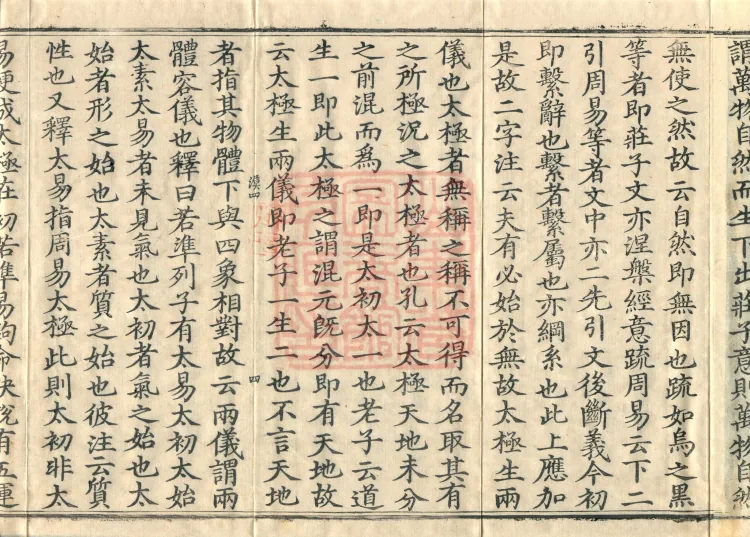 謂萬物自然而生下出莊子意則萬物自然
無使之然故云自然即無因也疏如烏之黑
等者即莊子文亦涅槃經意疏周易云下二
引周易等者文中亦二先引文後斷義今初
即繫辭也繫者繫屬也亦綱系也此上應加
是故二字注云夫有必始於無故太極生兩
儀也太極者無稱之稱不可得而名取其有
之所極況之太極者也孔云太極天地未分
之前混而爲一即是太初太一也老子云道
生一即此太極之謂混元旣分即有天地故
云太極生兩儀即老子一生二也不言天地
漠四
四
者指其物體下與四象相對故云兩儀謂兩
體容儀也釋曰若準列子有太易太初太始
太素太易者未見氣也太初者氣之始也太
始者形之始也太素者質之始也彼注云質
性也又釋太易指周易太極此則太初非太
易便成太極在初若準易鉤命決說有五運